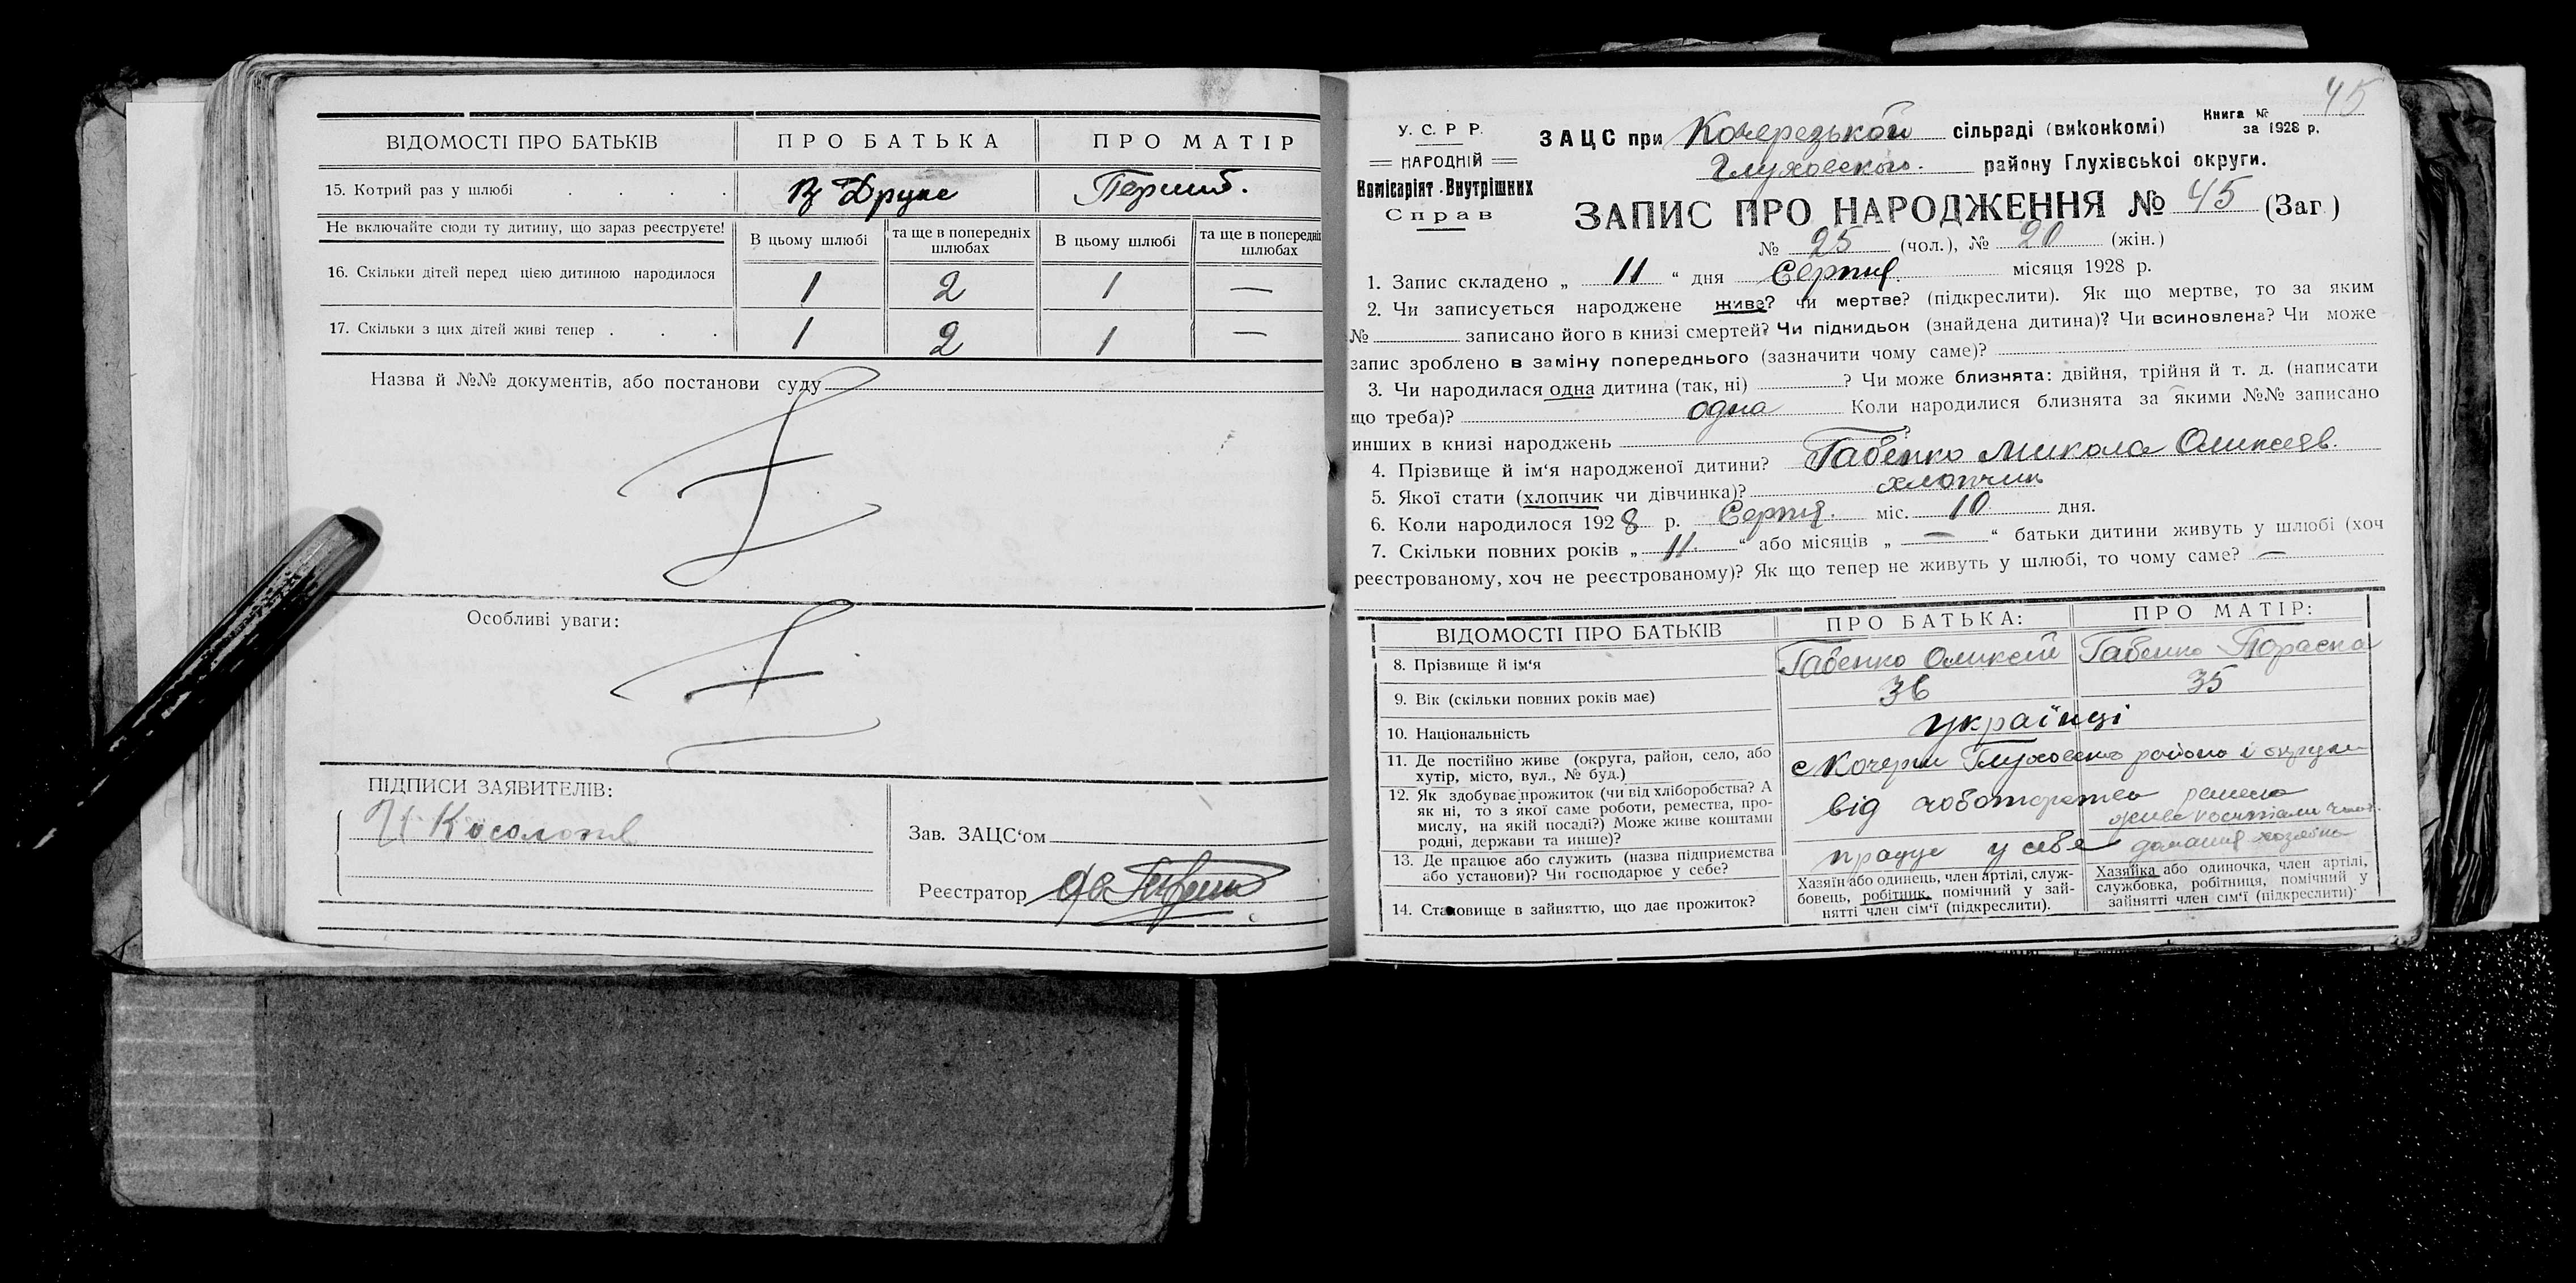 ВІДОМОСТІ ПРО БАТЬКІВ ПРО БАТЬКА ПРО МАТІР
15. Котрий раз у шлюбі В Друге Перший.
Не включайте сюди ту дитину, що зараз реєструєте!
В цьому шлюбі та ще в попередніх шлюбах В цьому шлюбі та ще в попередніх шлюбах
16. Скільки дітей перед цією дитиною народилося 1 2 1 —
17. Скільки з цих дітей живі тепер 1 2 1 —
Назва й №№ документів, або постанови суду
Особливі уваги:
ПІДПИСИ ЗАЯВИТЕЛІВ:
Зав. ЗАЦС‘ом
Реєстратор
45
У. С. Р. Р.
НАРОДНІЙ
Комісаріят Внутрішних
Справ
ЗАЦС при Кочерезькой сільраді (виконкомі)
Книга №
за 1928 р.
Глуховского району Глухівської округи.
ЗАПИС ПРО НАРОДЖЕННЯ № 45 (Заг.)
№ 25 (чол.), № 20 (жін.)
1. Запис складено „ 11 “ дня Серпня місяця 1928 р.
2. Чи записується народжене живе? чи мертве? (підкреслити). Як що мертве, то за яким
№ записано його в книзі смертей? Чи підкидьок (знайдена дитина)? Чи всиновлена? Чи може
запис зроблено в заміну попереднього (зазначити чому саме)?
3. Чи народилася одна дитина (так, ні) ? Чи може близнята: двійня, трійня й т. д. (написати
що треба)? одна Коли народилися близнята за якими №№ записано
инших в книзі народжень ?
4. Прізвище й ім‘я народженої дитини? Габенко Микола Олексеяв.
5. Якої стати (хлопчик чи дівчинка)? хлопчик
6. Коли народилося 1928 р. Серпня. міс. 10 дня.
7. Скільки повних років „ 11. “ або місяців „ — “ батьки дитини живуть у шлюбі (хоч
реєстрованому, хоч не реєстрованому)? Як що тепер не живуть у шлюбі, то чому саме? —
ВІДОМОСТІ ПРО БАТЬКІВ ПРО БАТЬКА: ПРО МАТІР:
8. Прізвище й ім‘я Габенко Оликсей Габенко Параска
9. Вік (скільки повних років має) 36 35
10. Національність українці
11. Де постійно живе (округа, район, село, або
хутір, місто, вул., № буд.)
с Кочерги Глуховско района і округи
12. Як здобуває прожиток (чи від хліборобства? А
як ні, то з якої саме роботи, ремества, про-
мислу, на якій посаді?) Може живе коштами
родні, держави та инше)?
від
13. Де працює або служить (назва підприємства
або установи)? Чи господарює у себе?
працує у себе домашня хозяйка
14. Становище в зайняттю, що дає прожиток?
Хазяїн або одинець, член артілі, служ-
бовець, робітник, помічний у зай-
нятті член сім‘ї (підкреслити).
Хазяйка або одиночка, член артілі,
службовка, робітниця, помічний у
зайнятті член сім‘ї (підкреслити)